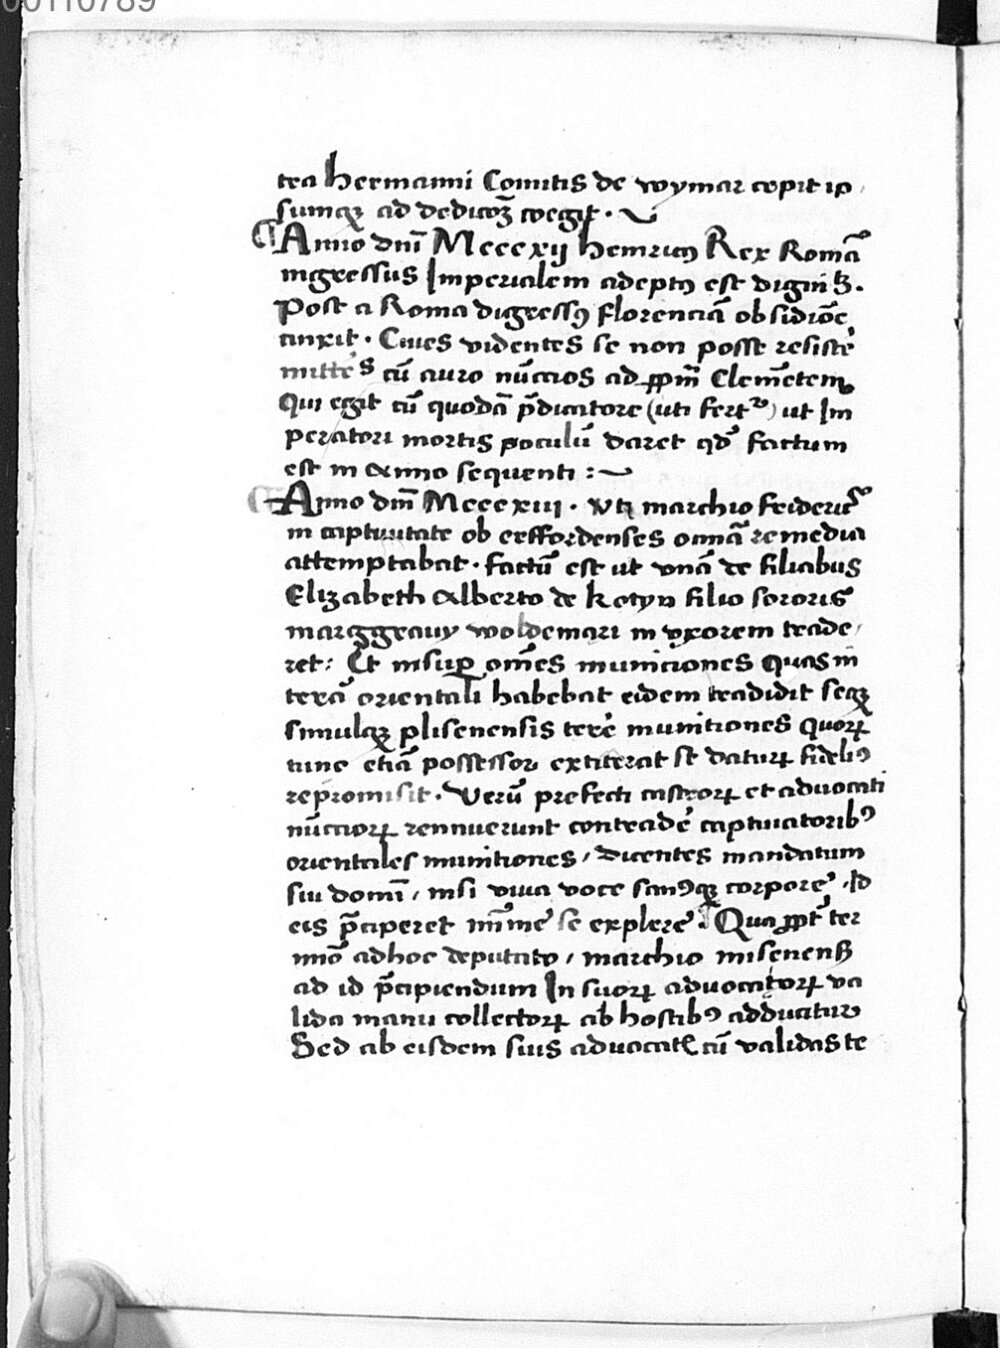 00110789
tra Hermanni Comitis de wymar cepit ip
sumqꝫ ad dedicoꝫ coegit .
¶ Anno dnī Mcccxij Henricꝰ Rex Romā
ingressus Imperialem adeptꝰ est dignitꝫ .
Post a Roma digressꝰ florenciā obsidiōe
cinxit . Ciues videntes se non posse resistē
mittēs cū auro nūccios ad ꝑpm̄ Clemētem
Qui egit cū quodā p̄dicatore (uti fertᷣ) ut Im
peratori mortis poculū daret qd̄ factum
est in anno sequenti :~
¶ Anno dnī Mcccxiii . Vti marchio frideric9
in captiuitate ob erffordenses omnā remedia
attemptabat . factū est ut vnā de filiabus
Elizabeth Alberto de Kotyn filio sororis
marggrauy woldemari in vxorem trade
ret : Et insuꝑ omēs municiones quas in
terā orientali habebat eidem tradidit seqꝫ
simulqꝫ plisenensis terē munitiones quoꝝ
tunc etiā possessor extiterat se datuꝝ fideliꝰ
repromisit . Verū prefecti castroꝝ et aduocati
nūccioꝝ rennuerunt contradē captiuatoribꝰ
orientales munitiones / dicentes mandatum
sui domī / nisi viua voce sanꝰqꝫ corpore . Id
eis p̄ciperet mīme se explere . Qua ꝓpt̄ ter
mīo adhoc deputato / marchio misenenß
ad id p̄cipiendum In suoꝝ aduocatoꝝ va
lida manu collectoꝝ ab hostibꝰ adducitur
Sed ab eisdem suis aduocatꝭ cū validas te